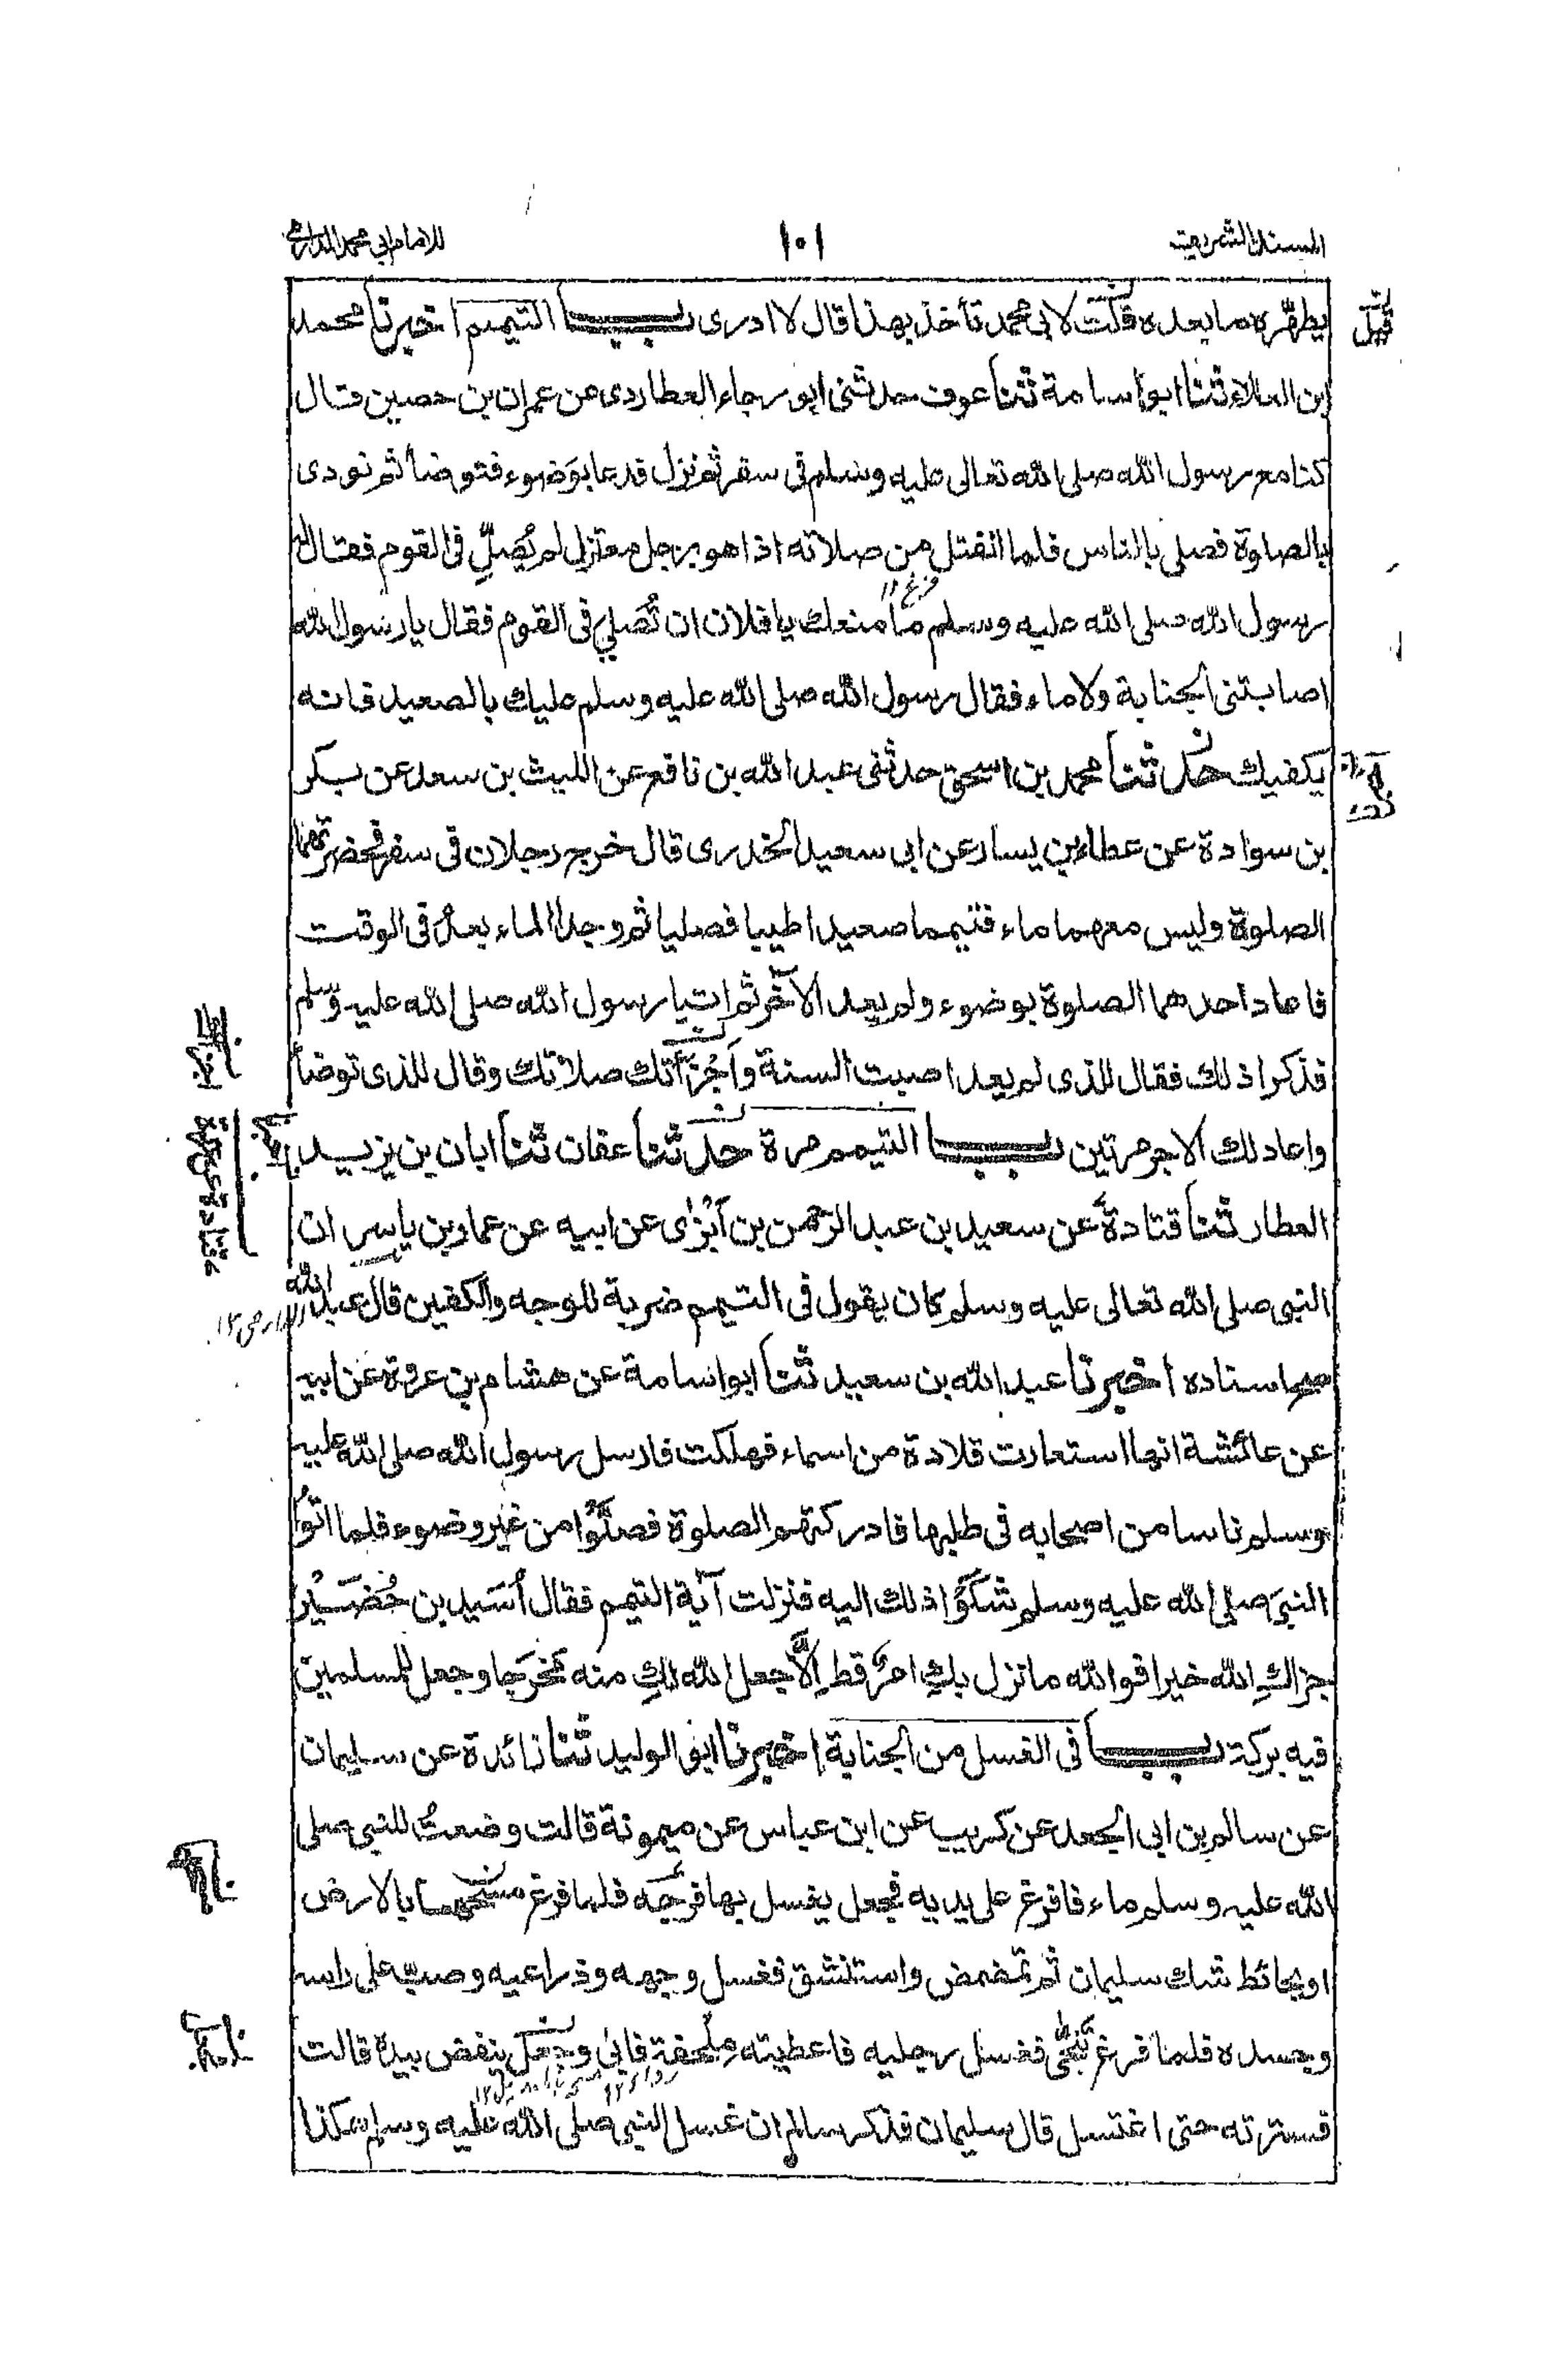 المسند الشريف
١٠١
للامام ابي محمد الدارمي
يطهّره ما بعده قلت لابى محمد تأخذ بهذا قال لا ادرى باب التيمم اخبرنا محمد
قيل
ابن العلاء ثنا ابو اسامة ثنا عوف حدثنى ابو رجاء العطاردى عن عمران بن حصين قال
كنا مع رسول الله صلى الله تعالى عليه وسلم فى سفر ثم نزل فدعا بوَضوء فتوضأ ثم نودى
بالصلوة فصلى بالناس فلما انفتل من صلاته اذا هو برجل معتزل لم يُصلِّ فى القوم فقال له
رسول الله صلى الله عليه وسلم ما منعك يا فلان ان تُصلي فى القوم فقال يا رسول الله
اصابتنى الجنابة ولا ماء فقال رسول الله صلى الله عليه وسلم عليك بالصعيد فانه
يكفيك حدثنا محمد بن اسحق حدثنى عبد الله بن نافع عن الليث بن سعد عن بكر
بن سوادة عن عطاء بن يسار عن ابى سعيد الخدرى قال خرج رجلان فى سفر فحضرتهما
الصلوة وليس معهما ماء فتيمما صعيدا طيبا فصليا ثم وجدا الماء بعدُ فى الوقت
فاعاد احدهما الصلوة بوضوء ولم يعد الآخر ثم اتيا رسول الله صلى الله عليه وسلم
فذكرا ذلك فقال للذى لم يعد اصبت السنة واَجْزَأتك صلاتك وقال للذى توضأ
واعاد لك الاجر مرتين باب التيمم مرة حدثنا عفان ثنا ابان بن يزيد
العطار ثنا قتادة عن سعيد بن عبد الرحمن بن اَبْزٰى عن ابيه عن عمار بن ياسر ان
النبى صلى الله تعالى عليه وسلم كان يقول فى التيمم ضربة للوجه والكفين قال عبد الله
صح اسناده اخبرنا عبد الله بن سعيد ثنا ابو اسامة عن هشام بن عروة عن ابيه
عن عائشة انها استعارت قلادة من اسماء فهلكت فارسل رسول الله صلى الله عليه
وسلم ناسا من اصحابه فى طلبها فادركتهم الصلوة فصلَّوْا من غير وضوء فلما اتوُا
النبىَ صلى الله عليه وسلم شكَوْا ذلك اليه فنزلت آية التيمم فقال اُسَيد بن حُضَيْر
جزاكِ الله خيرا فوالله ما نزل بكِ امرٌ قط اِلَّا جعل الله لكِ منه مَخرَجا وجعل للمسلمين
فيه بركة باب فى الغسل من الجنابة اخبرنا ابو الوليد ثنا زائدة عن سليمان
عن سالم بن ابى الجعد عن كريب عن ابن عباس عن ميمونة قالت وضعتُ للنبى صلى
الله عليه وسلم ماء فافرغ على يديه فجعل يغسل بها فرجه فلما فرغ مسحهما بالارض
او بحائط شك سليمان ثم تمضمض واستنشق فغسل وجهه وذراعيه وصبّ على راسه
وجسده فلما فرغ تنحّى فغسل رجليه فاعطيته مِلحفة فابىٰ وجعل ينفض بيده قالت
فسترته حتى اغتسل قال سليمان فذكر سالم ان غسل النبى صلى الله عليه وسلم هكذا